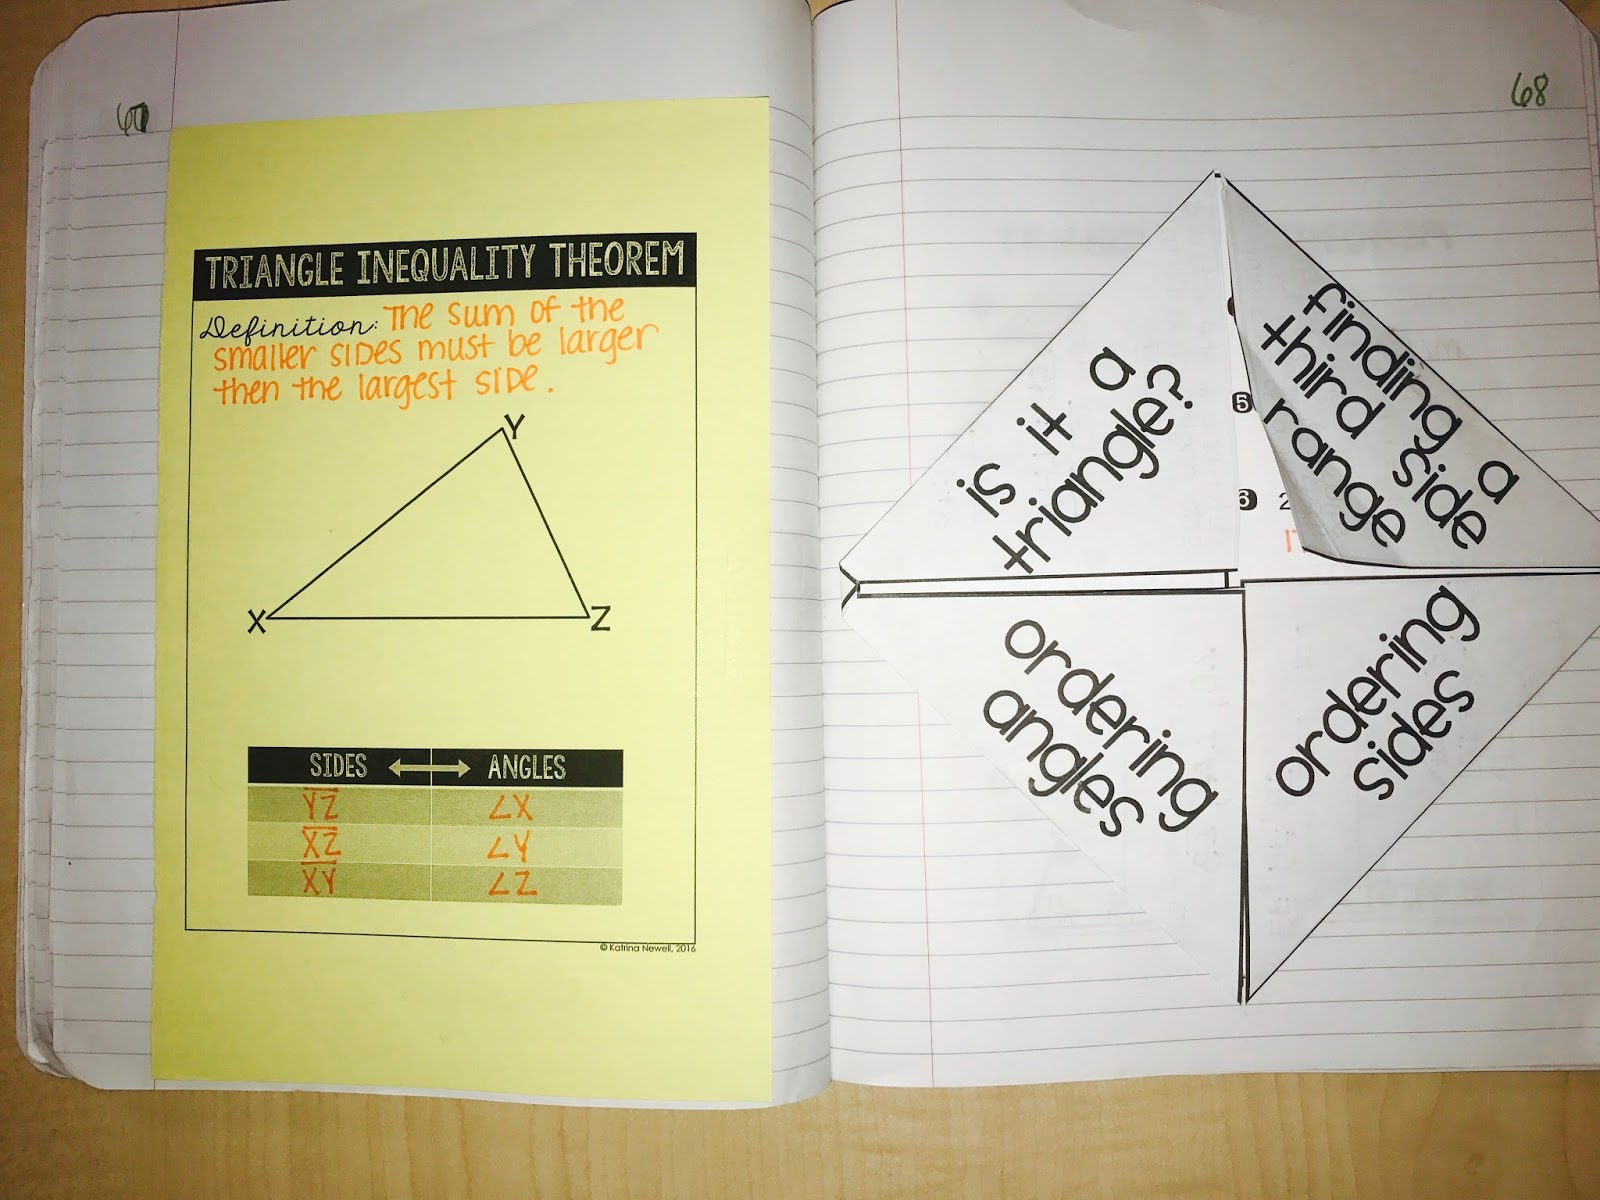 TRIANGLE INEQUALITY THEOREM
Definition: The sum of the
smaller sides must be larger
then the largest side.
Y
X
Z
SIDES ANGLES
YZ ∠X
XZ ∠Y
XY ∠Z
© Katrina Newell, 2016
68
is it a
triangle?
finding a
third side
range
5
6 2
ordering
angles
ordering
sides